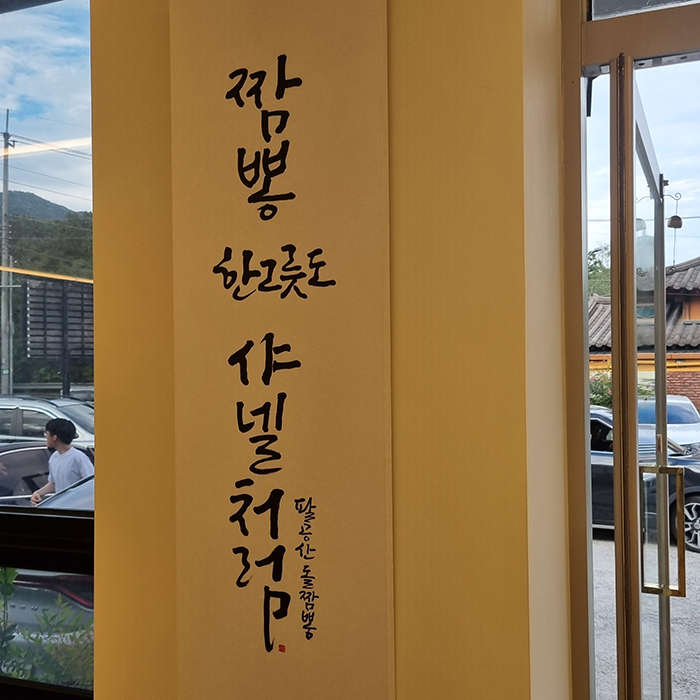 짬뽕
한그릇도
샤넬처럼
팔공산 돌짬뽕